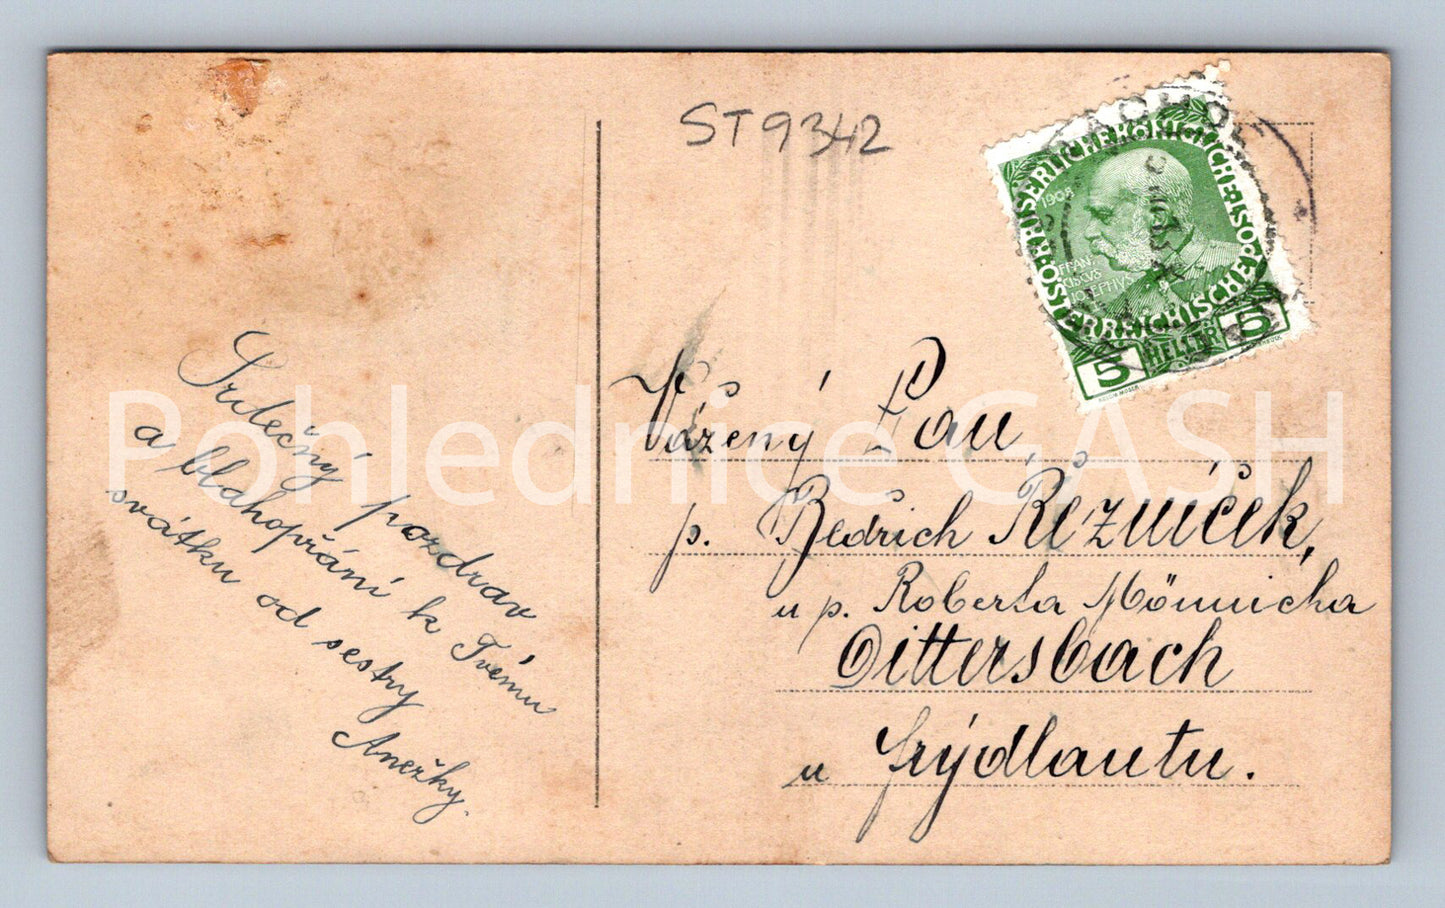 ST9342
KAISERLICHE KÖNIGLICHE POST
ÖSTERREICHISCHE
1908
FRAN
CISCVS
IOSEPHVS
5 HELLER 5
Srdečný pozdrav
a blahopřání k Tvému
svátku od sestry
Anežky.
Vážený Pan
p. Bedřich Řezníček,
u p. Roberta Mönnicha
Dittersbach
u Frýdlantu.
Pohlednice GASH